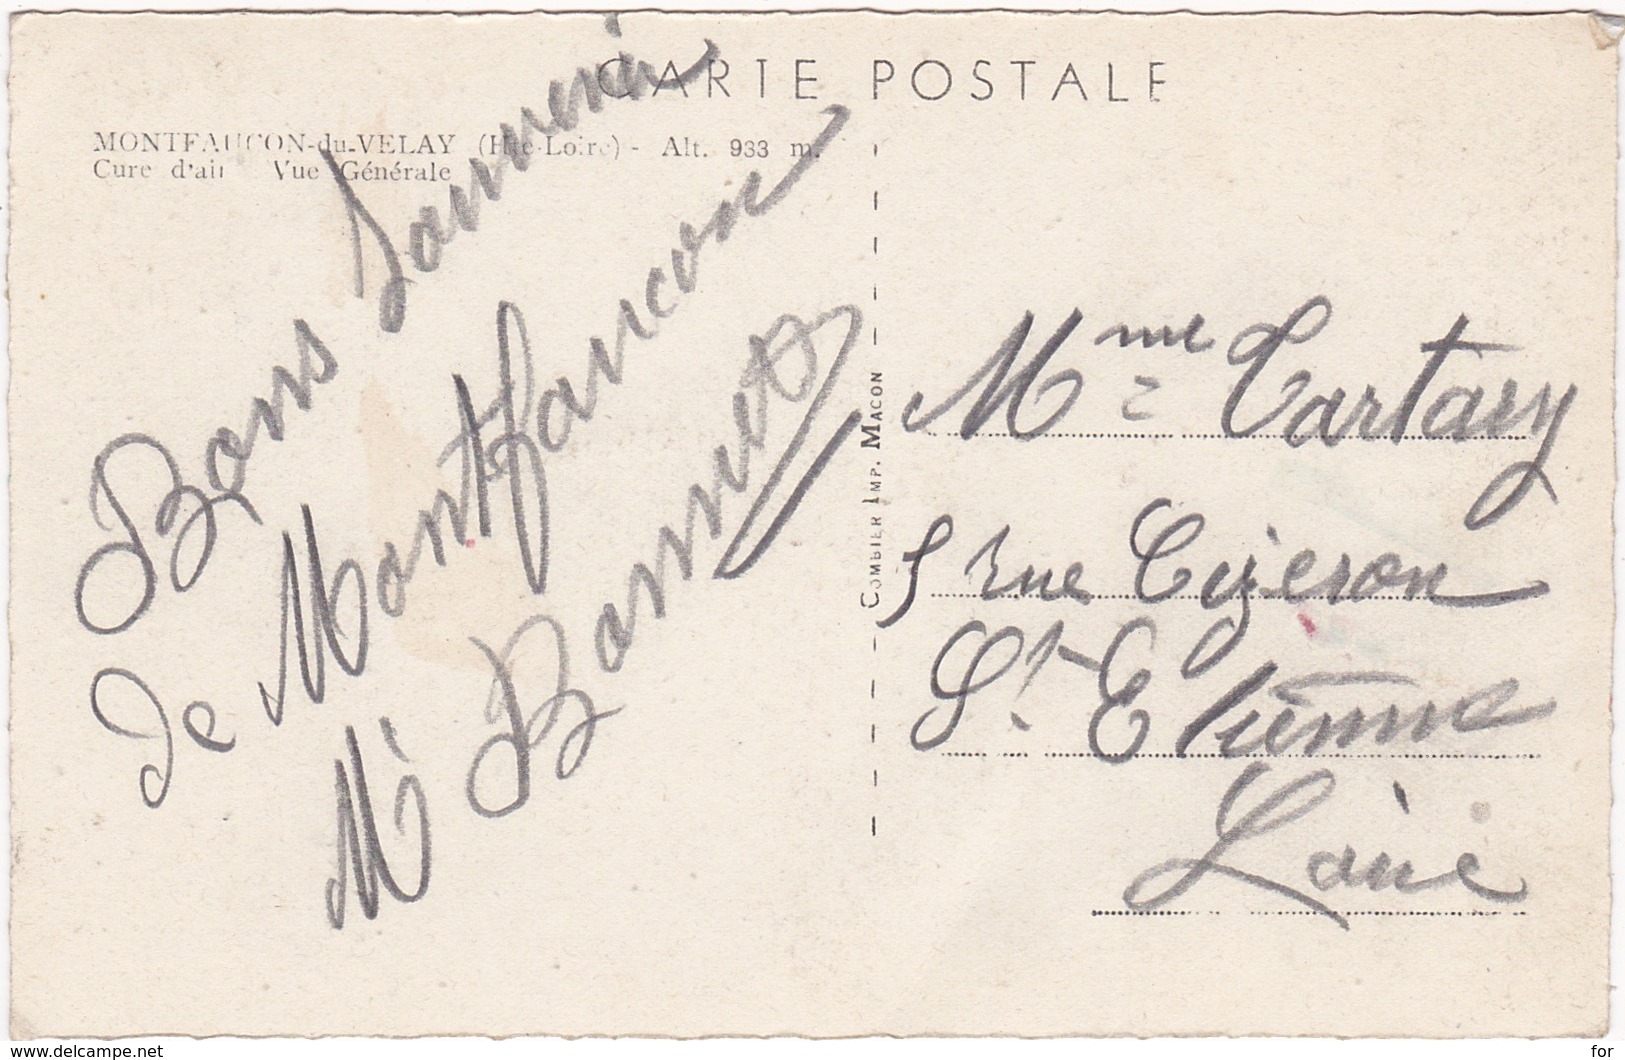 CARTE POSTALE
MONTFAUCON-du-VELAY (Hte-Loire) - Alt. 933 m.
Cure d'air Vue Générale
Bons Souvenir
de Montfaucon
COMBIER IMP. MACON
Mme Tartary
5 rue Tizeron
St Etienne
Loire
www.delcampe.net
for